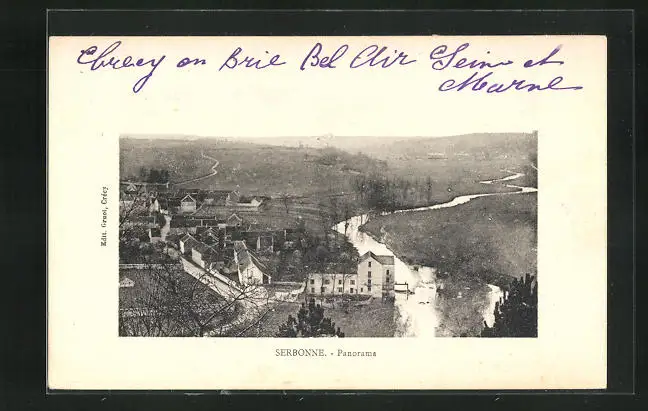 Crécy on Brie Bel Air Seine et
Marne
Edit. Gruot, Crécy
SERBONNE. - Panorama